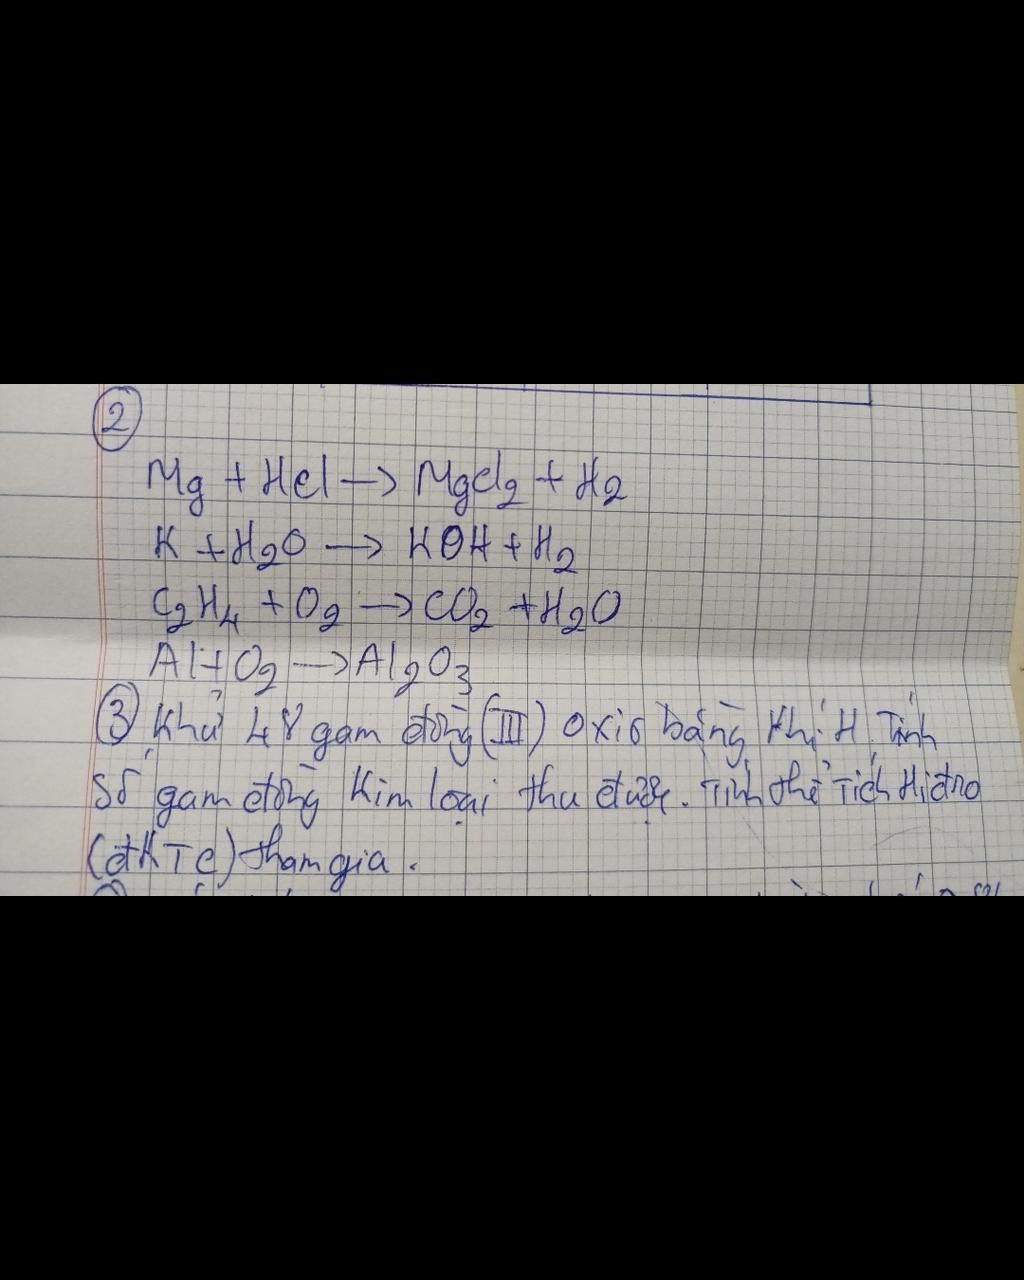 ②
Mg + HCl → MgCl2 + H2
K + H2O → KOH + H2
C2H4 + O2 → CO2 + H2O
Al + O2 → Al2O3
③ Khử 48 gam đồng (III) oxit bằng khí H. Tính
số gam đồng kim loại thu được. Tính thể tích Hiđro
(đKTC) tham gia.